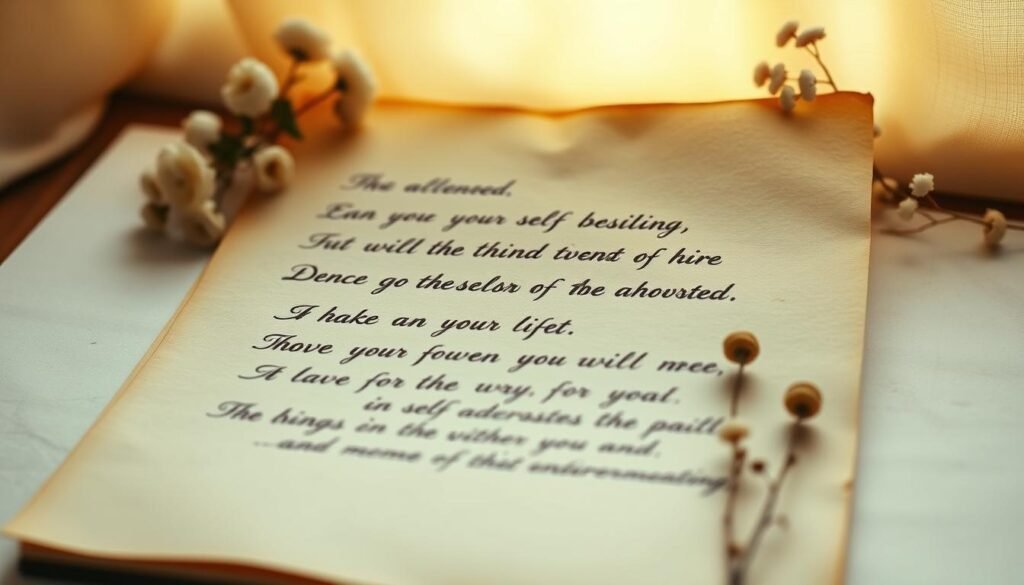 The allenred.
Ean you your self besiling,
Tut will the thind twent of hire
Dence go theselor of the ahousted.
A hake an your lifet.
Thove your fowen you will mree,
A lave for the wry, for yoal.
in self adcrostes the paill
The hings in the vither you and.
...and meme of thit